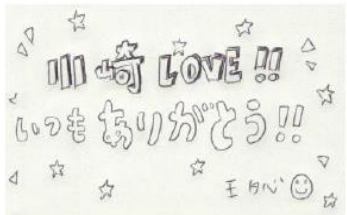 川崎 LOVE!!
いつもありがとう!!